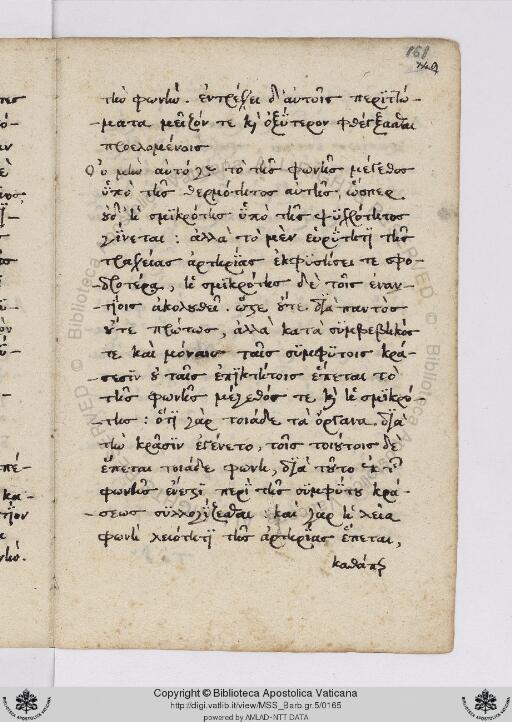 161
τὴν φωνήν. ἐντρέχει δ' αὐτοῖς περιττώ-
ματα μεῖζόν τε καὶ ὀξύτερον φθέγξασθαι
προελομένοις
Οὐ μὴν αὐτό γε τὸ τῆς φωνῆς μέγεθος
ὑπὸ τῆς θερμότητος αὐτῆς, ὥσπερ
οὐδ' ἡ σμικρότης ὑπὸ τῆς ψυχρότητος
γίνεται: ἀλλὰ τὸ μὲν εὐρύτητι τῆς
τραχείας ἀρτηρίας ἐκφυσήσει τε σφο-
δροτέρᾳ, ἡ σμικρότης δὲ τοῖς ἐναν-
τίοις ἀκολουθεῖ. ὥστε οὔτε διὰ παντὸς
οὔτε πρώτως, ἀλλὰ κατὰ συμβεβηκός
τε καὶ μόναις ταῖς συμφύτοις κρά-
σεσιν οὐ ταῖς ἐπικτήτοις ἕπεται τὸ
τῆς φωνῆς μέγεθός τε καὶ ἡ σμικρό-
της: ὅτι γὰρ τοιάδε τὰ ὄργανα διὰ
τὴν κρᾶσιν ἐγένετο, τοῖς τοιούτοις δὲ
ἕπεται τοιάδε φωνὴ, διὰ τοῦτο ἐκ τῆς
φωνῆς ἔνεστι περὶ τῆς συμφύτου κρά-
σεως συλλογίζεσθαι. καὶ γὰρ ἡ λεία
φωνὴ λειότητι τῆς ἀρτηρίας ἕπεται,
καθάπερ
Copyright © Biblioteca Apostolica Vaticana
http://digi.vatlib.it/view/MSS_Barb.gr.5/0165
powered by AMLAD-NTT DATA